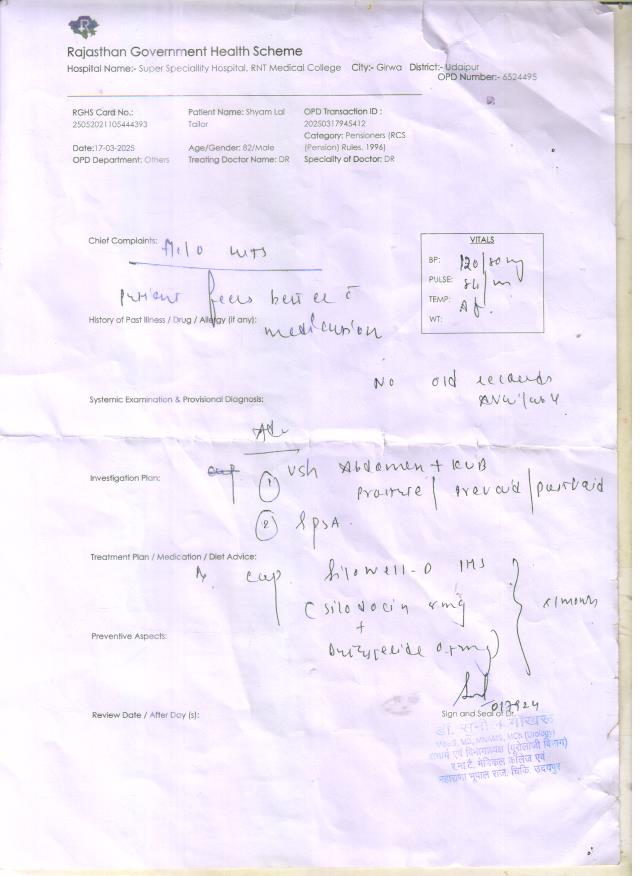 Rajasthan Government Health Scheme
Hospital Name:- Super Speciallity Hospital, RNT Medical College City:- Girwa District:- Udaipur
OPD Number:- 6524495
RGHS Card No.: Patient Name: Shyam Lal OPD Transaction ID :
25052021105444393 Tailor 20250317945412
Category: Pensioners (RCS
Date:17-03-2025 Age/Gender: 82/Male (Pension) Rules, 1996)
OPD Department: Others Treating Doctor Name: DR Speciality of Doctor: DR
Chief Complaints: H/o LUTS
VITALS
BP: 120/80
PULSE: 84/m
TEMP: Af.
WT:
patient feels better c̄
History of Past Illness / Drug / Allergy (if any): medication
No old records
available
Systemic Examination & Provisional Diagnosis:
Adv
Investigation Plan: ① USG Abdomen + KUB
prevoid / postvoid
② S PSA
Treatment Plan / Medication / Diet Advice:
Rx cap Silowell-D 1HS
( Silodocin 8mg x1 month
+
Preventive Aspects: 0.5mg)
Review Date / After Day (s): Sign and Seal of Dr.
017924
MBBS, MS, MNAMS, MCh (Urology)
आचार्य एवं विभागाध्यक्ष (यूरोलॉजी विभाग)
र.ना.टै. मेडिकल कॉलेज एवं
महाराणा भूपाल राज. चिकि. उदयपुर